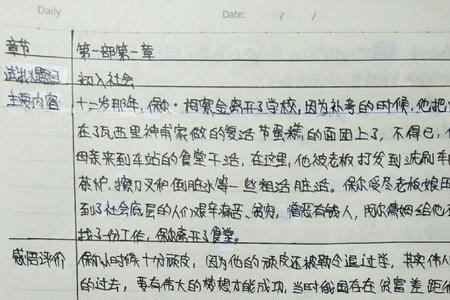 Daily Date: / /
章节 第一部第一章
试拟题目 初入社会
主要内容 十二岁那年,保尔·柯察金离开了学校,因为补考的时候,他把
在了瓦西里神甫家做的复活节蛋糕的面团上了,不得已,
母亲来到车站的食堂干活,在这里,他被老板打发到洗刷车间
茶炉,擦刀叉和倒脏水等一些粗活脏活。保尔受尽老板娘
到了社会底层的人们艰辛痛苦、贫穷,憎恶有钱人,阿尔焦姆给他
找了份工作,保尔离开了食堂。
感悟评价 保尔小时候十分顽皮,因为他的顽皮还被勒令退过学,其实伟人
的过去,要有伟大的梦想才能成功,当时俄国存在贫富差距很